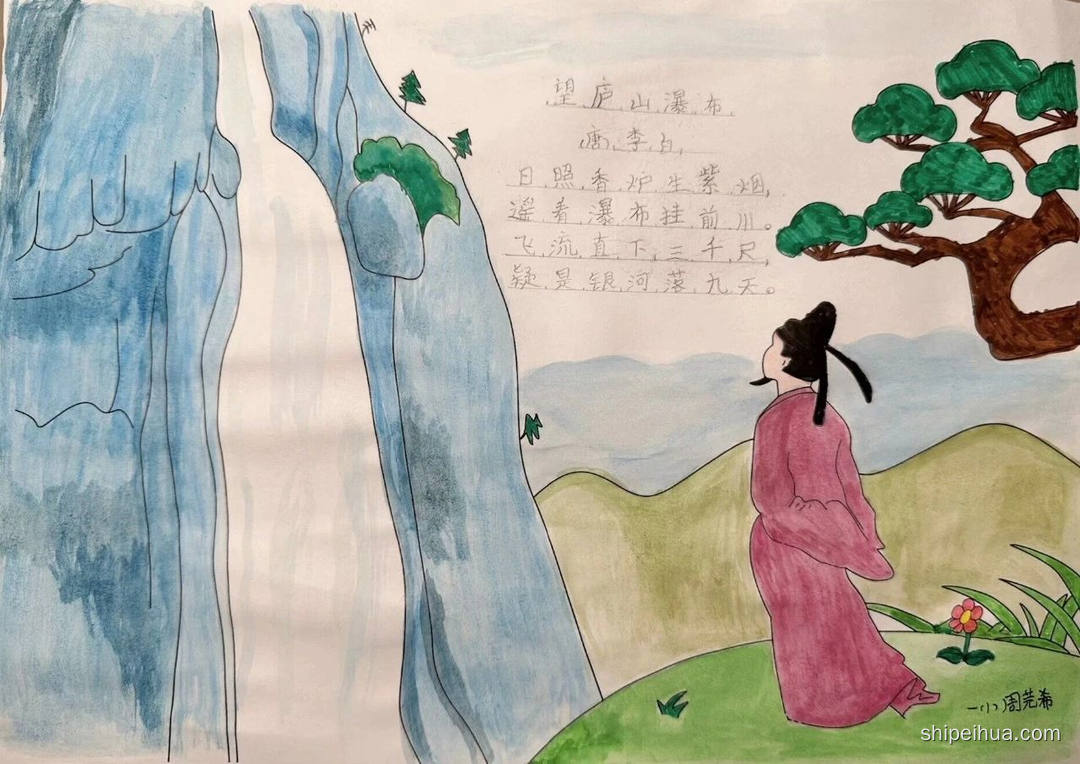 望庐山瀑布
唐 李白
日照香炉生紫烟，
遥看瀑布挂前川。
飞流直下三千尺，
疑是银河落九天。
一小 周芫希
shipeihua.com